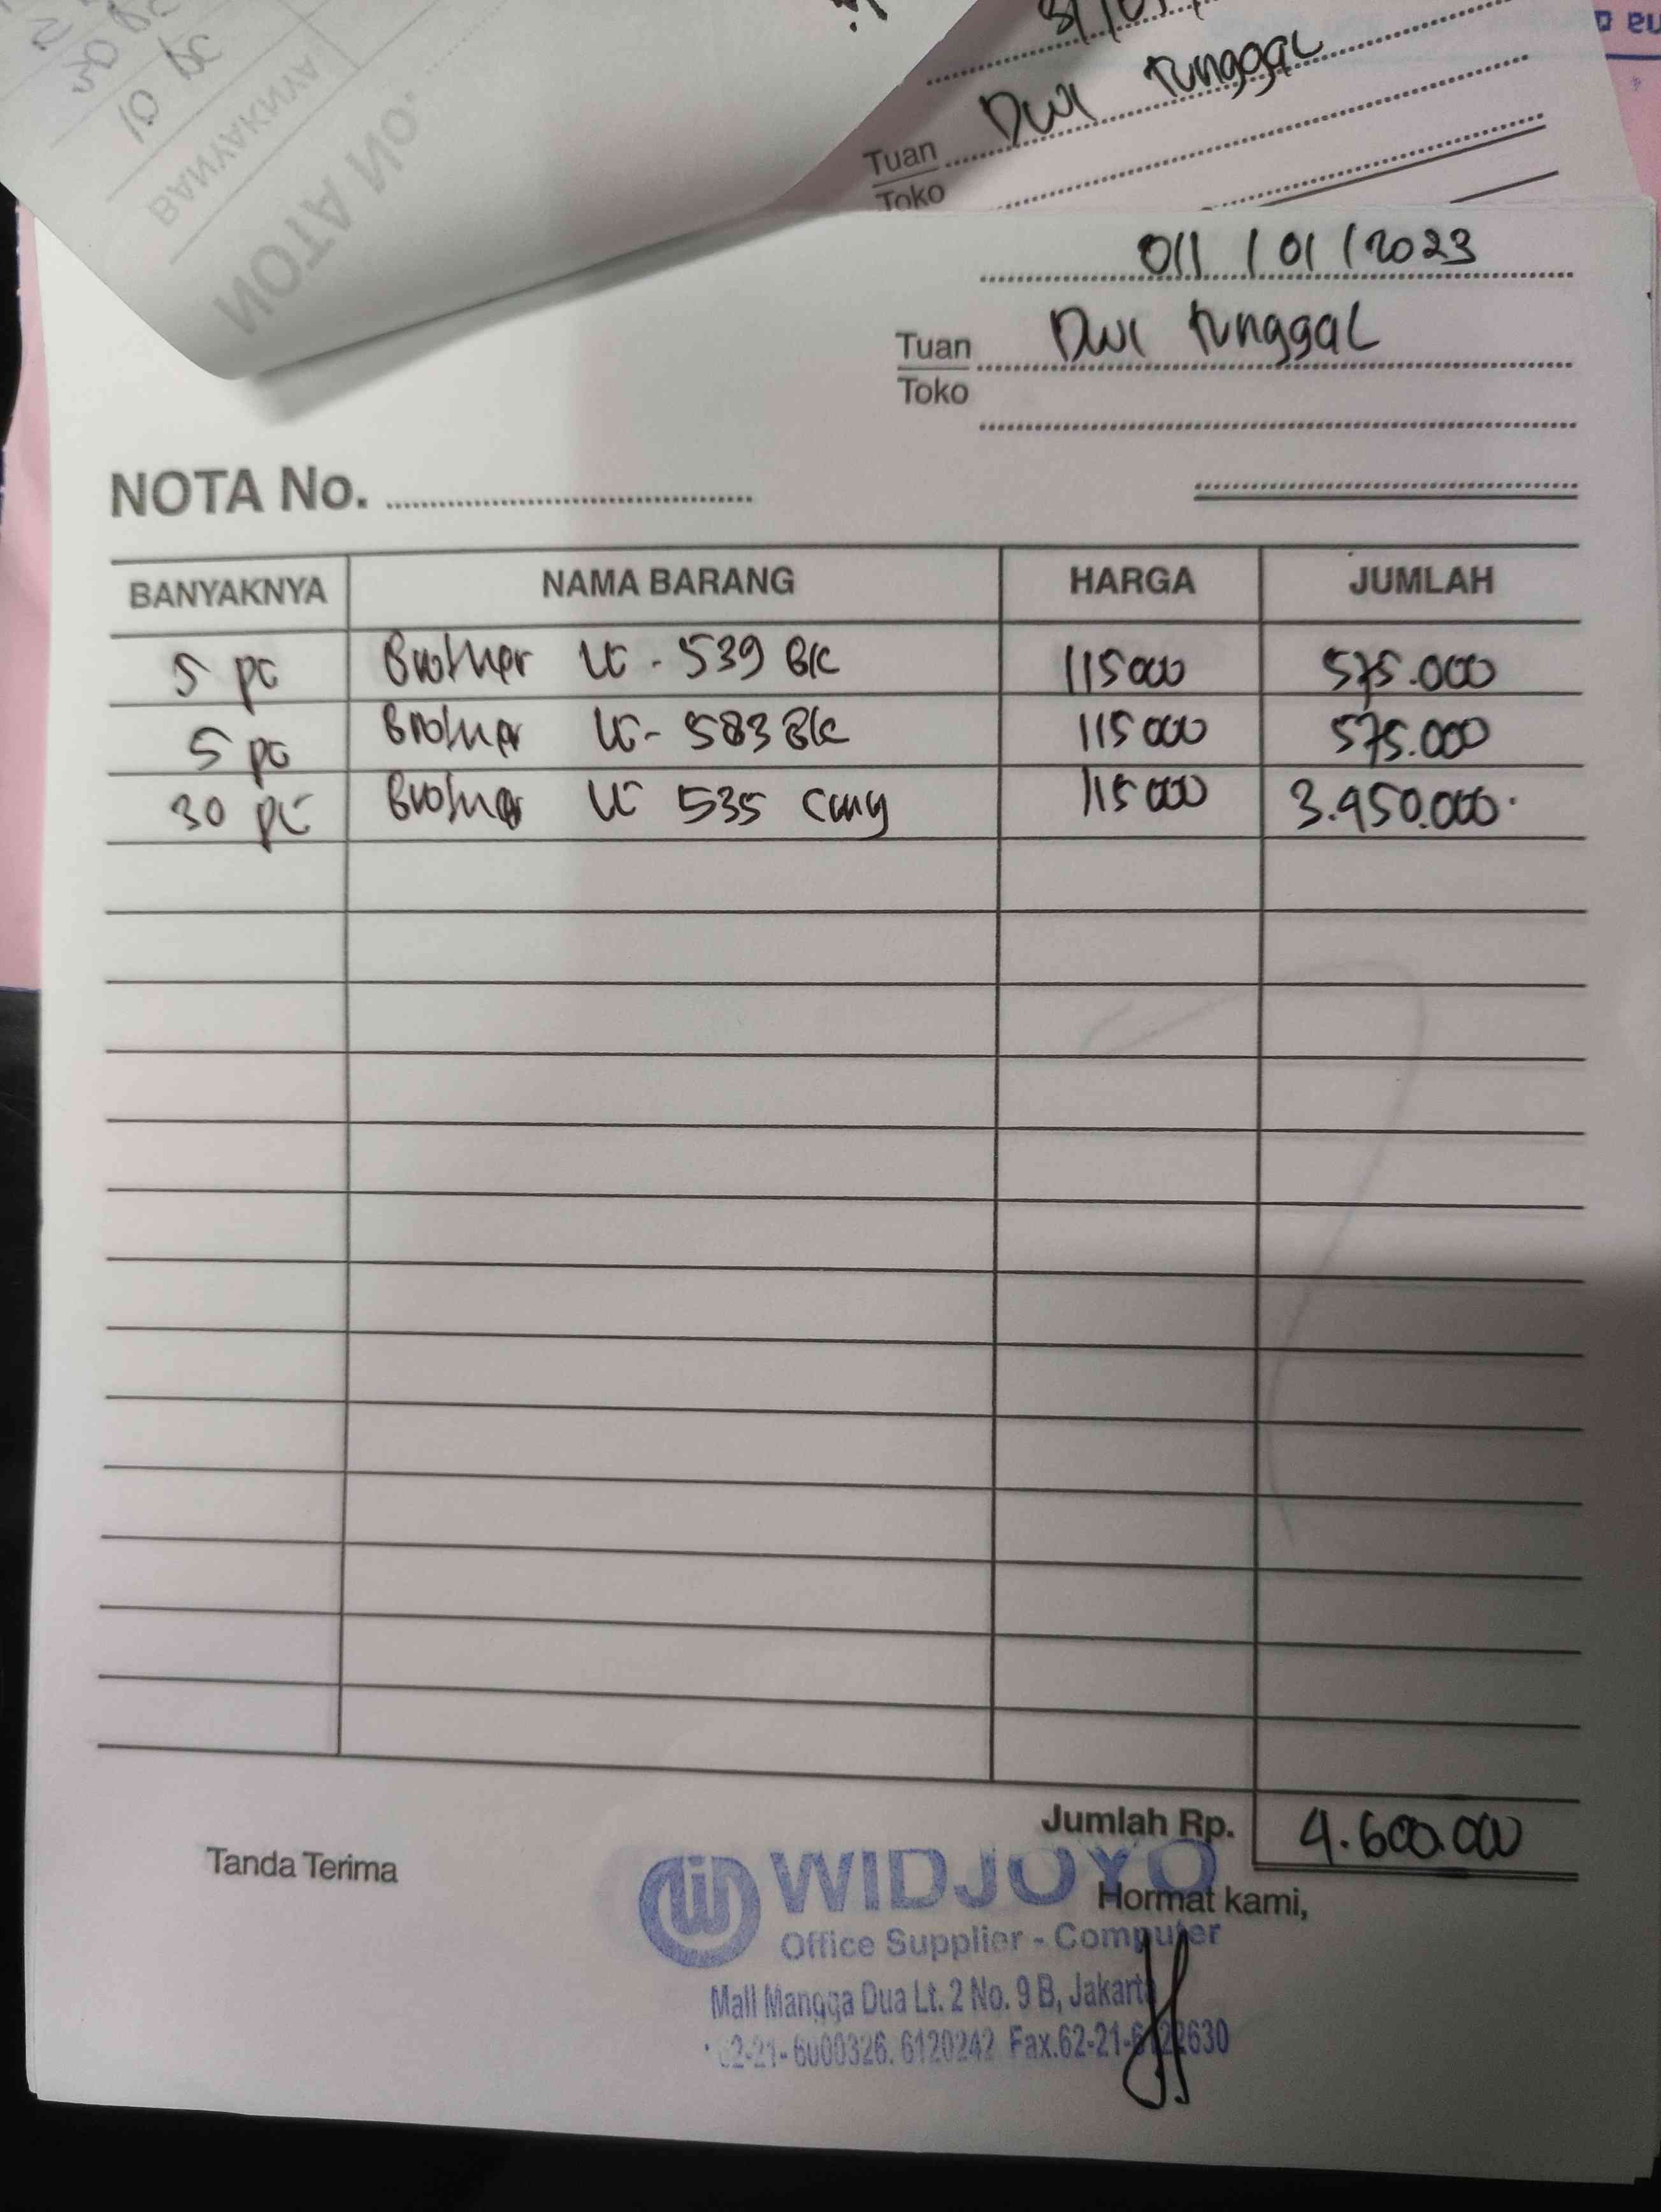 Dwi Tunggal
Tuan
Toko
BANYAKNYA
NOTA NO.
011 / 01 / 2023
Tuan Dwi Tunggal
Toko
NOTA No.
BANYAKNYA NAMA BARANG HARGA JUMLAH
5 pc Brother LC - 539 BK 115000 575.000
5 pc Brother LC - 583 BK 115000 575.000
30 pc Brother LC 535 Cmy 115000 3.450.000
Jumlah Rp. 4.600.000
Tanda Terima
WIDJOYO
Hormat kami,
Office Supplier - Computer
Mall Mangga Dua Lt. 2 No. 9 B, Jakarta
62-21-6000326. 6120242 Fax.62-21-6122630